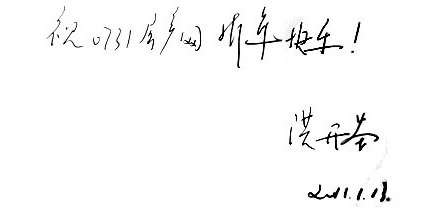 祝0731房产网新年快乐!
洪开基
2011.1.18.